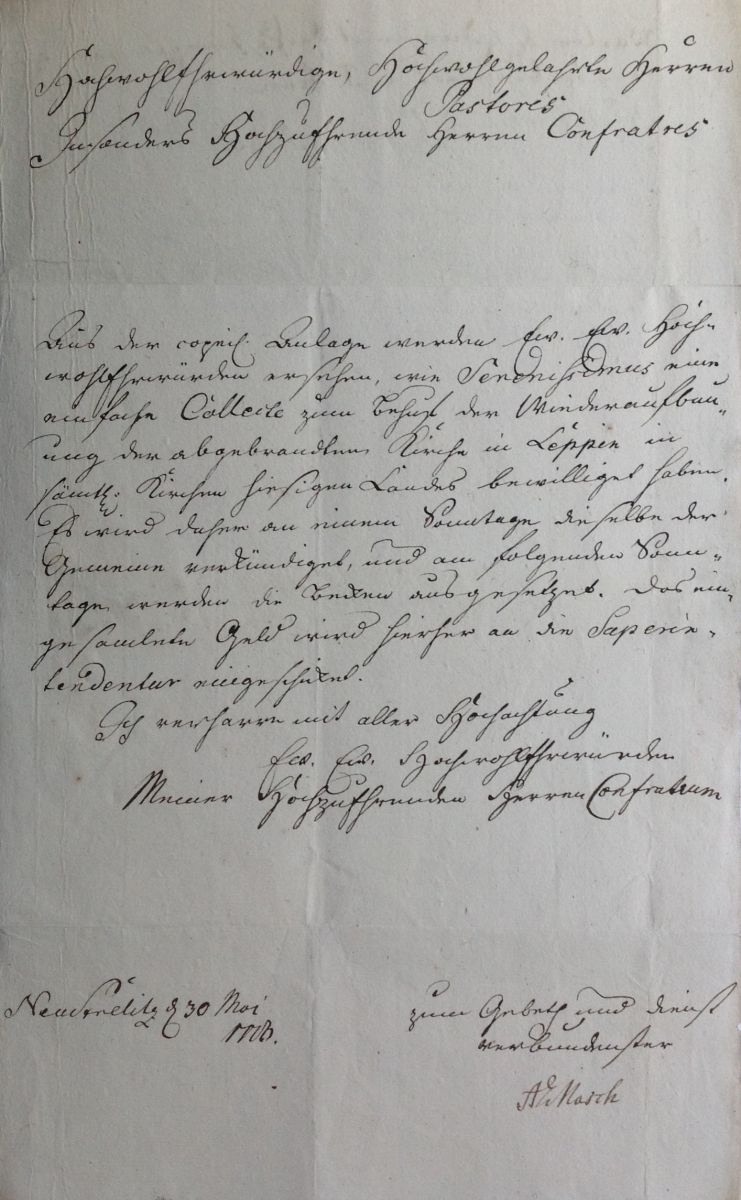 Hochwohlehrwürdige, Hochwohlgelahrte Herren
Pastores
Insonders Hochzuehrende Herren Confratres
Aus der copeil. Anlage werden Ew. Ew. Hoch-
wohlehrwürden ersehen, wie Serenissimus eine
einfache Collecte zum Behuf der Wiederaufbau-
ung der abgebrandten Kirche in Leppin in
sämtl: Kirchen hiesigen Landes bewilliget haben.
Es wird daher an einem Sonntage dieselbe der
Gemeine verkündiget, und am folgenden Sonn-
tage werden die Becken ausgesetzet. Das ein-
gesamlete Geld wird hierher an die Superin-
tendentur eingeschicket.
Ich verharre mit aller Hochachtung
Ew. Ew. Hochwohlehrwürden
Meiner Hochzuehrenden Herren Confratrum
Neustrelitz d 30 Mai
zum Gebeth und Dienst
verbundenster
Masch